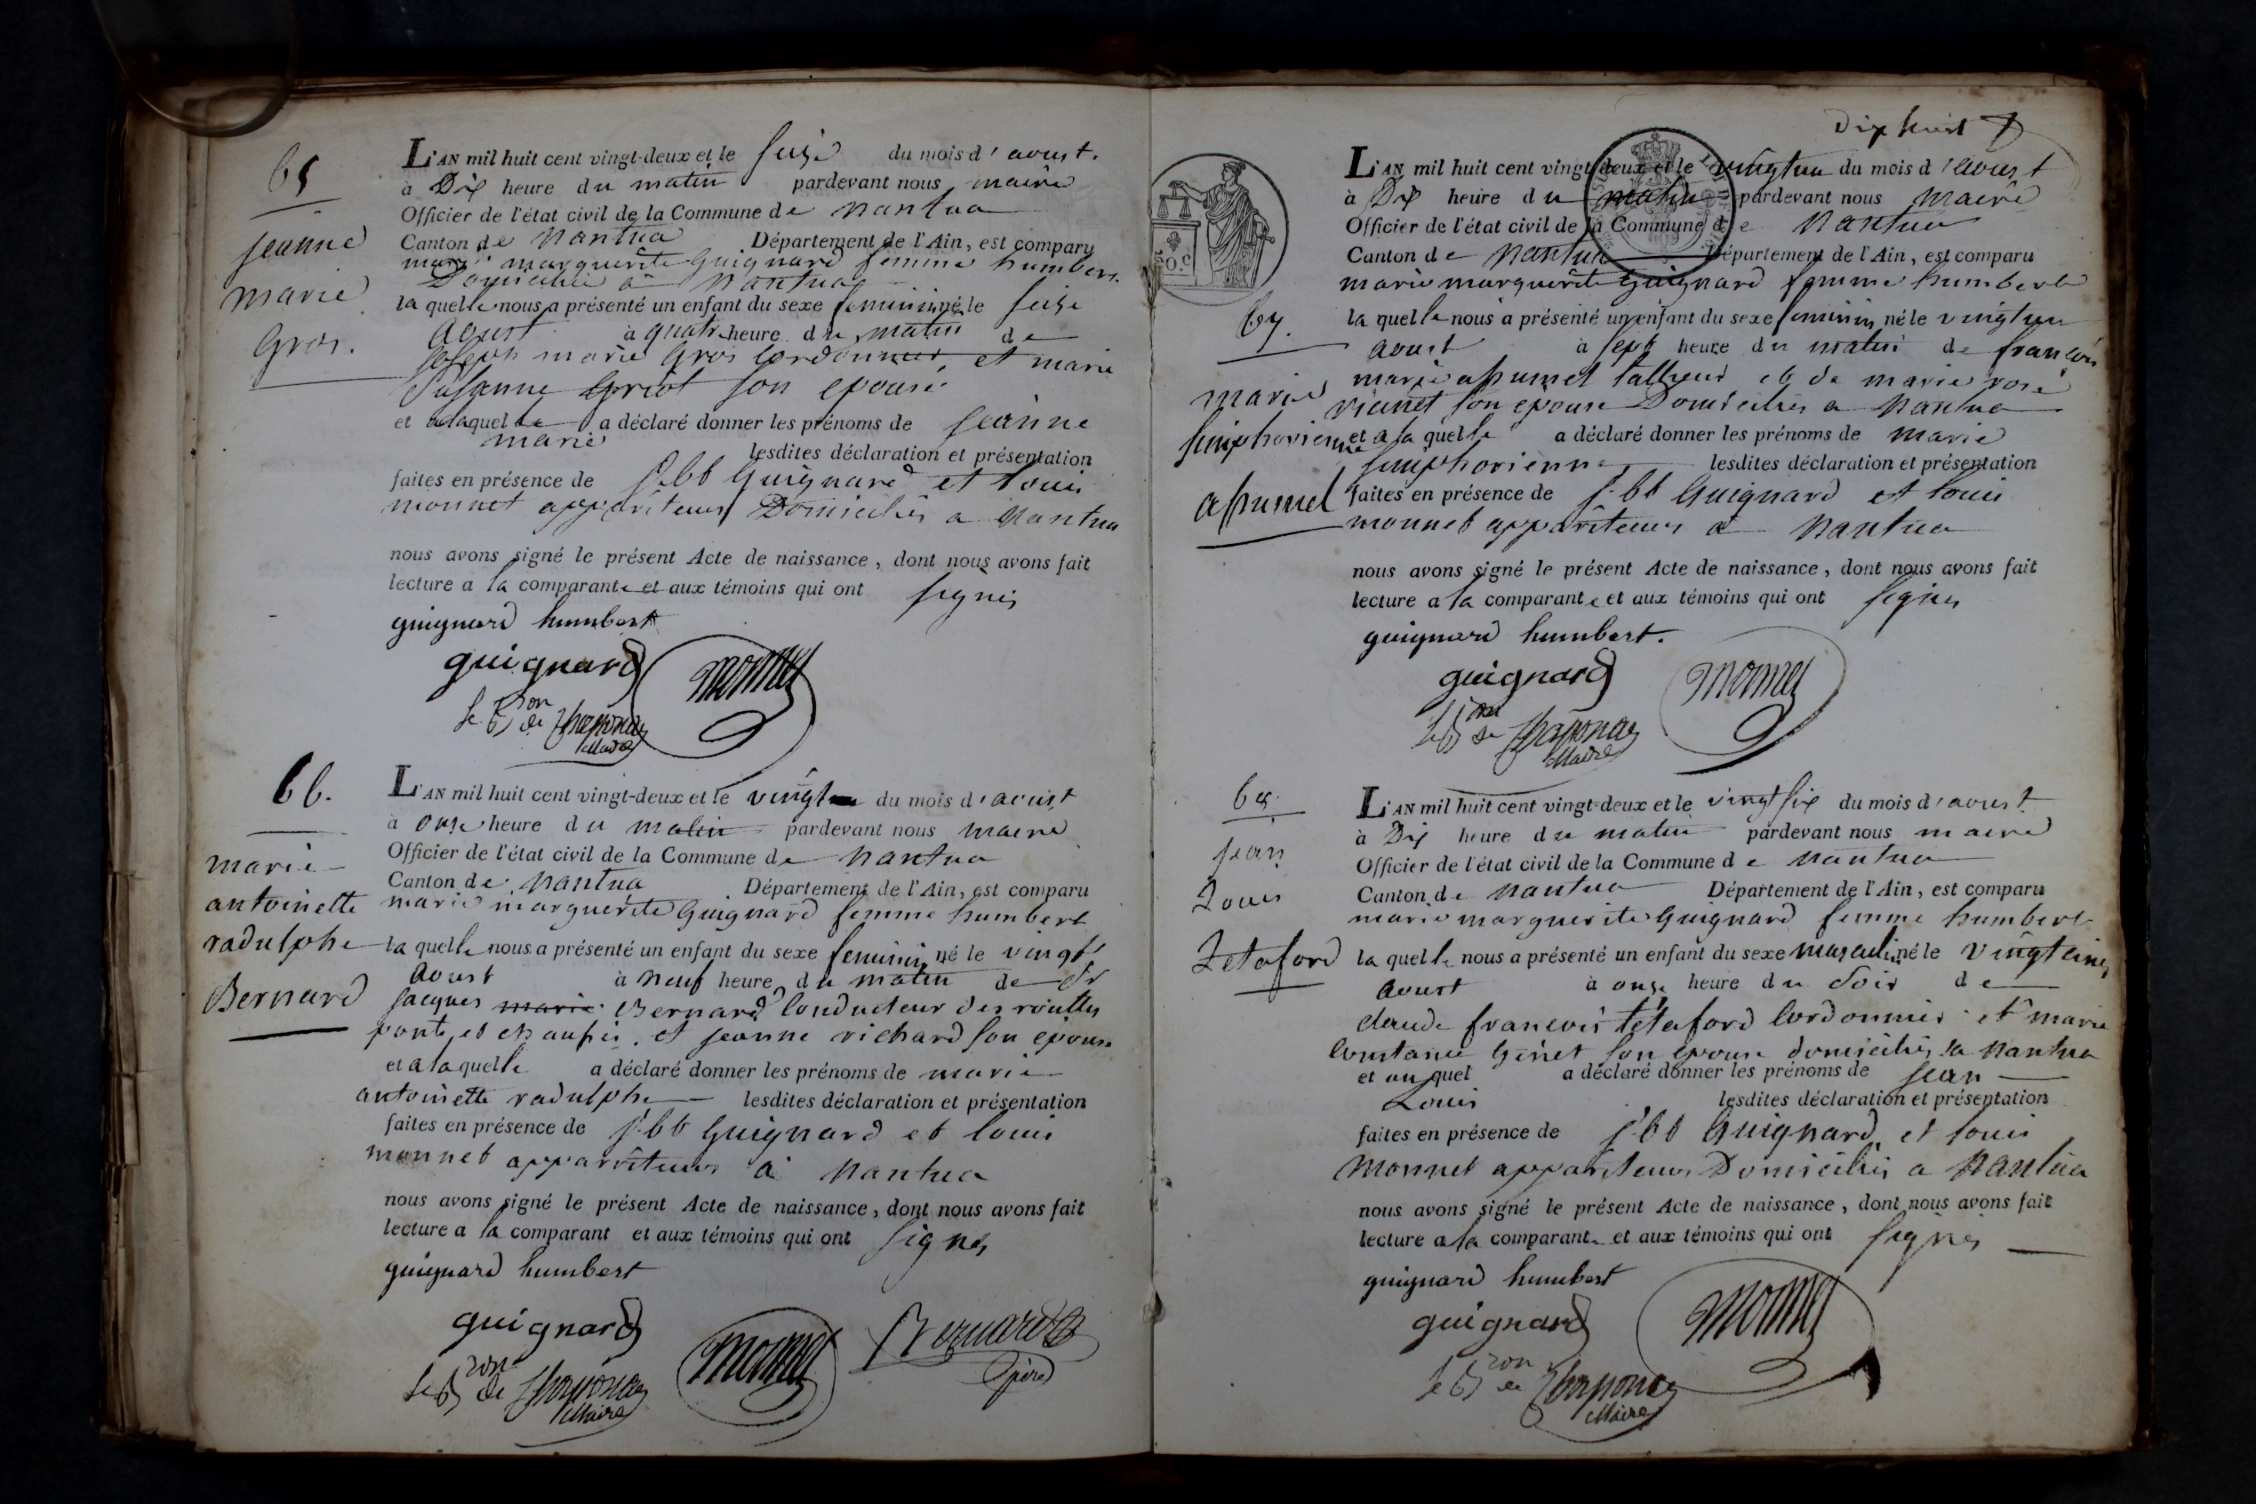 65
jeanne
marie
Gros.
L'AN mil huit cent vingt-deux et le seize du mois d'aoust.
à Dix heure du matin pardevant nous maire
Officier de l'état civil de la Commune de nantua
Canton de nantua Département de l'Ain, est comparu
marie marguerite Guignard femme humbert
Domiciliée à nantua
la quelle nous a présenté un enfant du sexe feminin né le seize
aoust à quatre heure du matin de
joseph marie Gros Cordonnier, et marie
Susanne son epouse
et a laquelle a déclaré donner les prénoms de jeanne
marie lesdites déclaration et présentation
faites en présence de j. bt Guignard et Louis
monnet appariteurs Domiciliés a nantua
nous avons signé le présent Acte de naissance, dont nous avons fait
lecture a la comparante et aux témoins qui ont signés
guignard humbert
guignard monnet
le Bon de
Maire
66.
marie
antoinette
radulphe
Bernard
L'AN mil huit cent vingt-deux et le vingt du mois d'aoust
à onze heure du matin pardevant nous maire
Officier de l'état civil de la Commune de nantua
Canton de nantua Département de l'Ain, est comparu
marie marguerite Guignard femme humbert
la quelle nous a présenté un enfant du sexe feminin né le vingt
aoust à neuf heure du matin de Sr
jacques marie Bernard Conducteur des
ponts et chaussées. et jeanne richard son epouse
et a laquelle a déclaré donner les prénoms de marie
antoinette radulphe lesdites déclaration et présentation
faites en présence de j. bt Guignard et Louis
monnet appariteurs a nantua
nous avons signé le présent Acte de naissance, dont nous avons fait
lecture a la comparant et aux témoins qui ont signés
guignard humbert
guignard monnet Bernard
le Bon de père
Maire
Dix huit
67.
marie
simphorienne
L'AN mil huit cent vingt-deux et le vingt un du mois d'aoust
à Dix heure du matin pardevant nous maire
Officier de l'état civil de la Commune de nantua
Canton de nantua Département de l'Ain, est comparu
marie marguerite Guignard femme humbert
la quelle nous a présenté un enfant du sexe feminin né le vingt un
aoust à sept heure du matin de françois
marie tailleur et de marie rose
son epouse Domiciliés a nantua
et a la quelle a déclaré donner les prénoms de marie
simphorienne lesdites déclaration et présentation
faites en présence de j. bt Guignard et Louis
monnet appariteurs a nantua
nous avons signé le présent Acte de naissance, dont nous avons fait
lecture a la comparante et aux témoins qui ont signés
guignard humbert.
guignard monnet
le Bon de
Maire
68.
jean
Louis
Letaford
L'AN mil huit cent vingt-deux et le vingt six du mois d'aoust
à Dix heure du matin pardevant nous maire
Officier de l'état civil de la Commune de nantua
Canton de nantua Département de l'Ain, est comparu
marie marguerite Guignard femme humbert
la quelle nous a présenté un enfant du sexe masculin né le vingt cinq
aoust à onze heure du soir de
claude françois Cordonnier et marie
Constance son epouse domiciliés a nantua
et au quel a déclaré donner les prénoms de jean
Louis lesdites déclaration et présentation
faites en présence de j. bt Guignard, et Louis
monnet appariteurs Domiciliés a nantua
nous avons signé le présent Acte de naissance, dont nous avons fait
lecture a la comparante et aux témoins qui ont signés
guignard humbert
guignard monnet
le Bon de
Maire